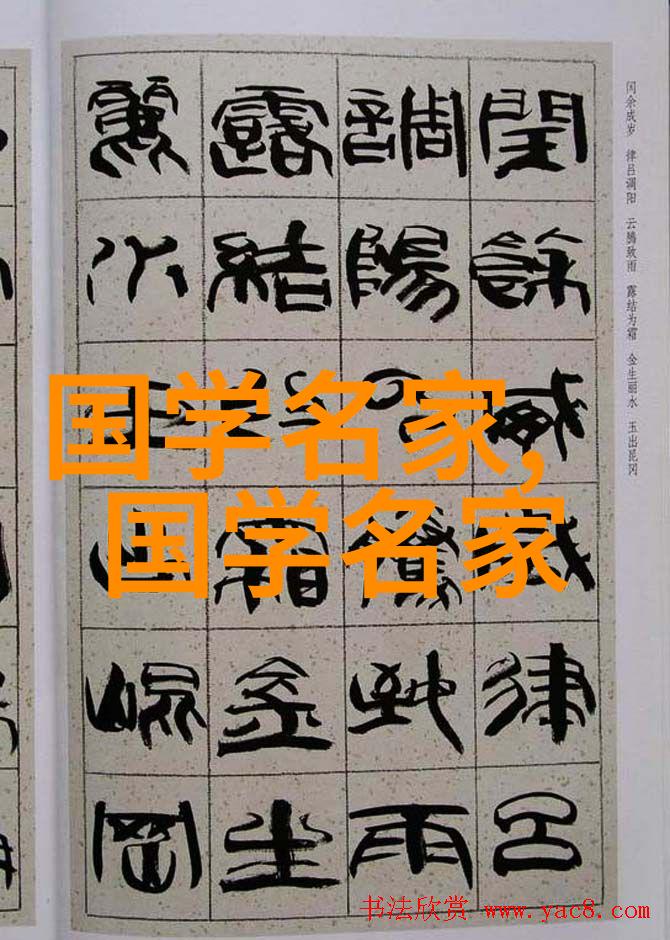 闰余成岁 律吕调阳 云腾致雨 露结为霜 金生丽水 玉出昆冈
閏餘成歲律呂
調陽云騰致雨
露結為霜金生
麗水玉出崐岡
国学名家,
国学名家
书法欣赏 www.yac8.com